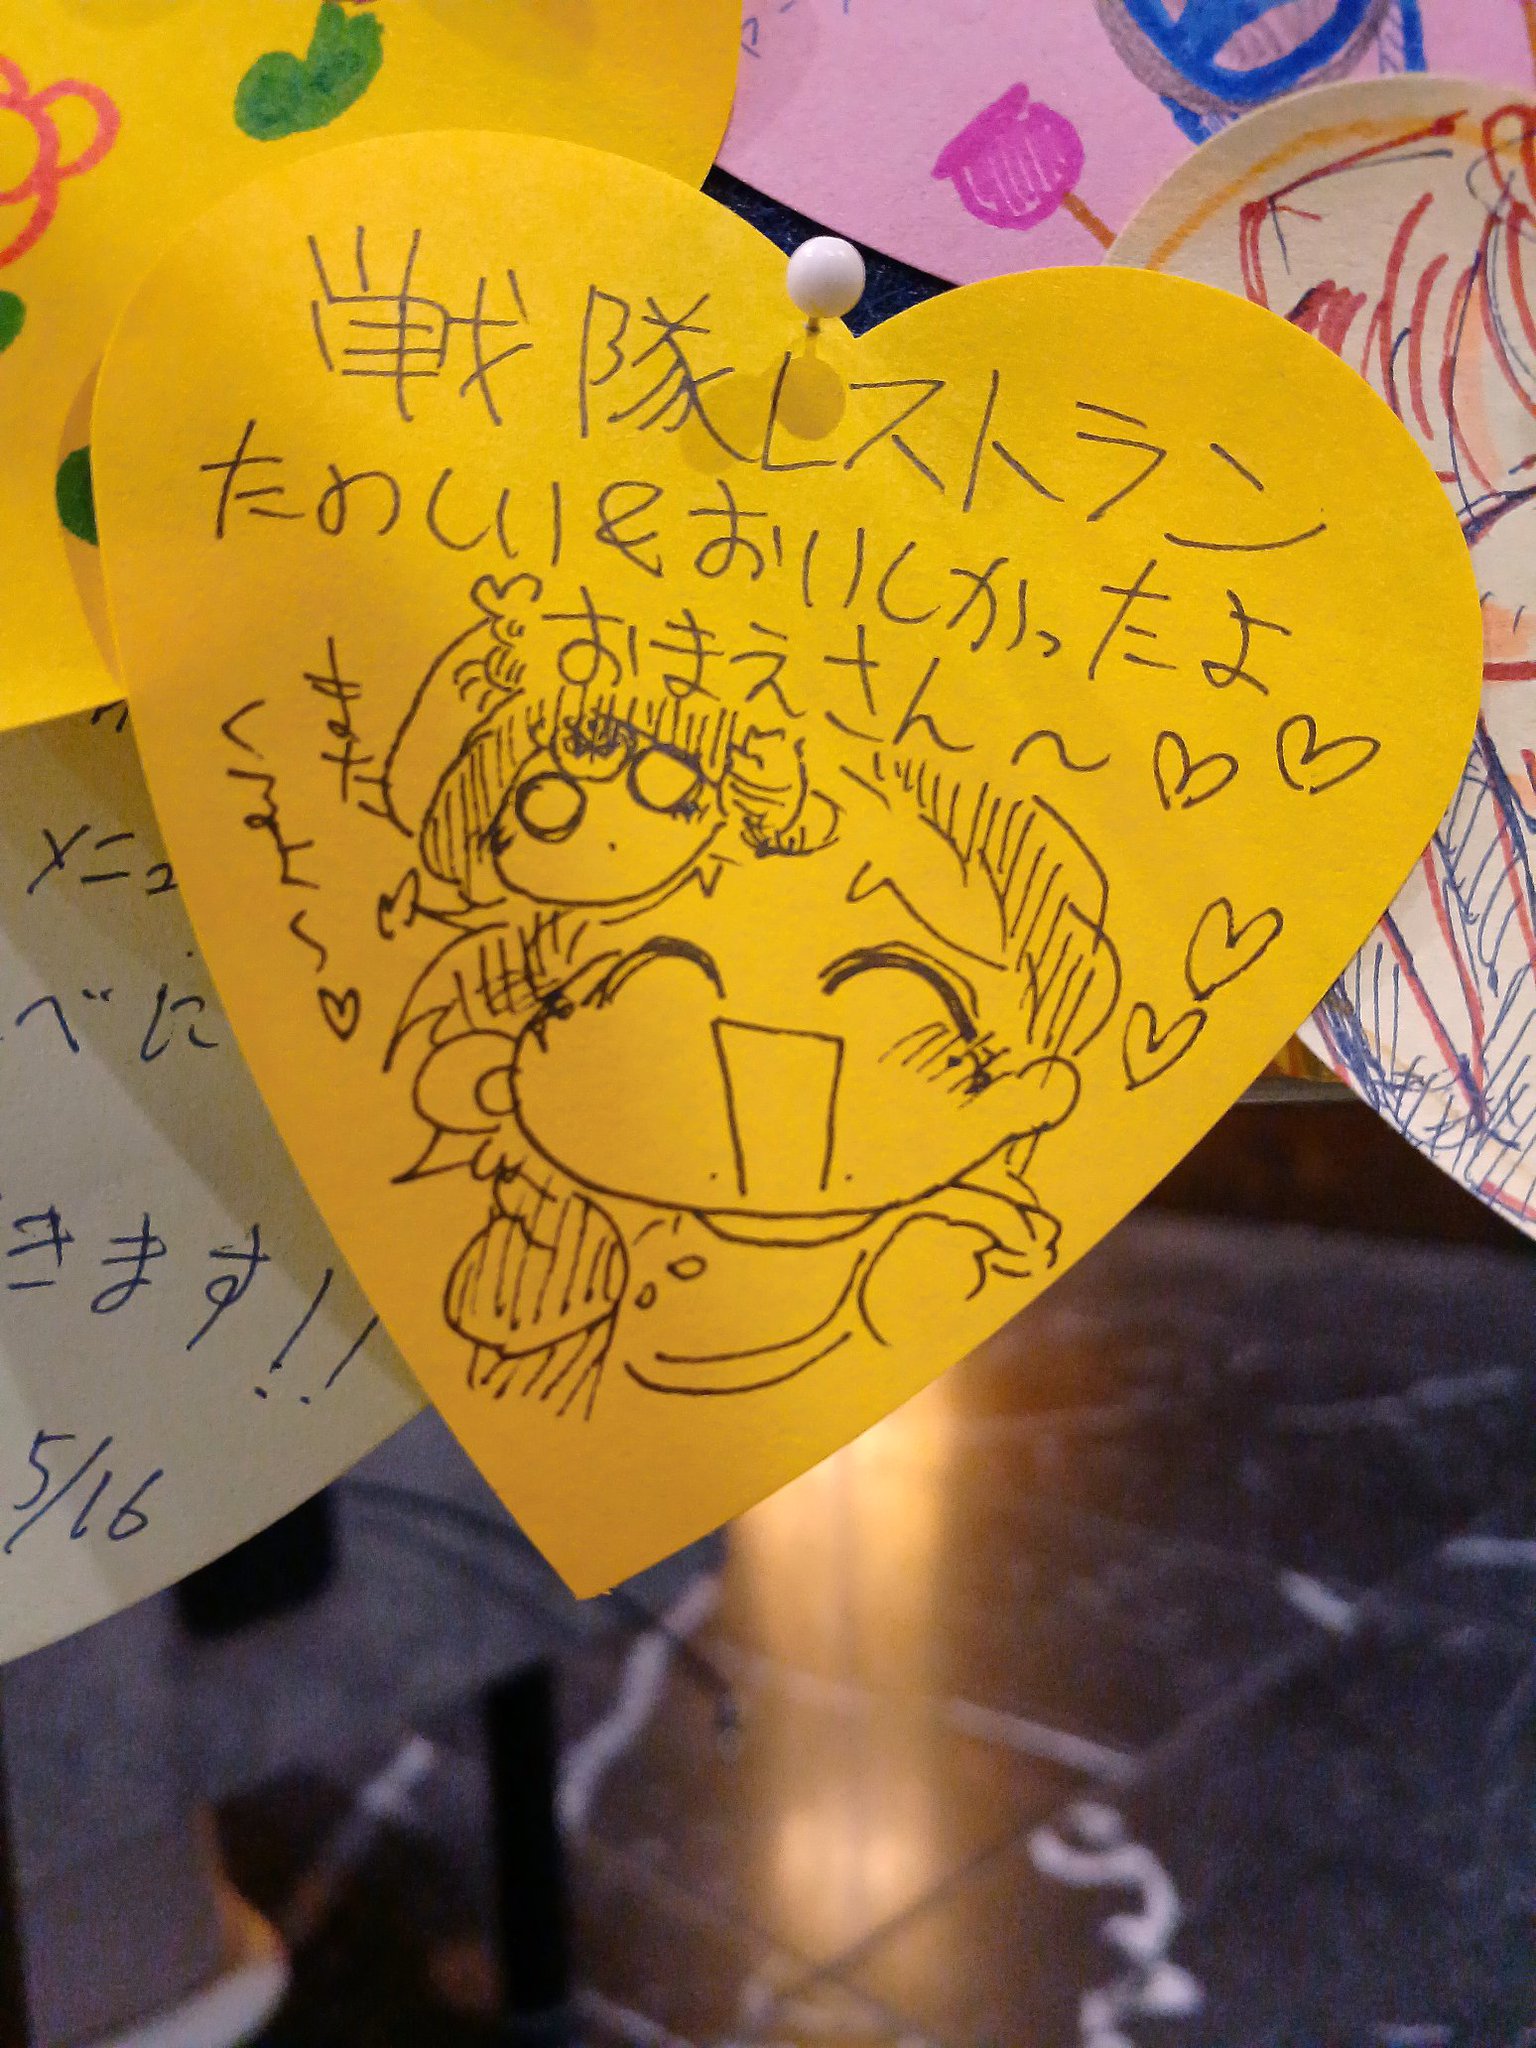 戦隊レストラン
たのしい&おいしかったよ
おまえさん〜♡♡
メニュ
べに
きます!!
5/16